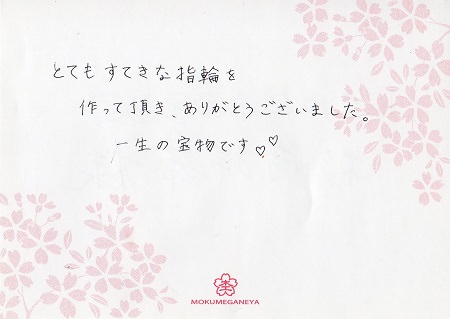 とてもすてきな指輪を
作って頂き、ありがとうございました。
一生の宝物です♡♡
MOKUMEGANEYA